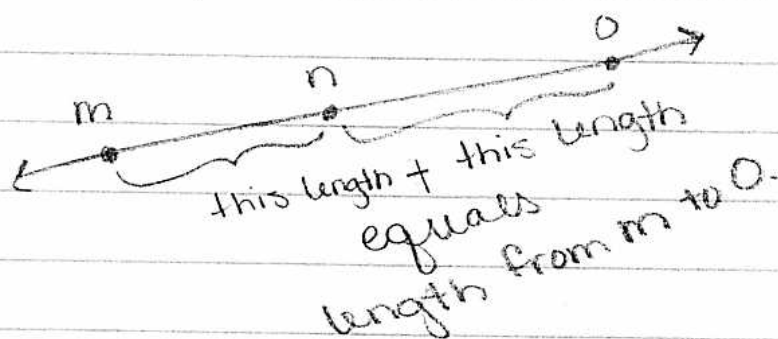 m n o
this length + this length
equals
length from m to O.